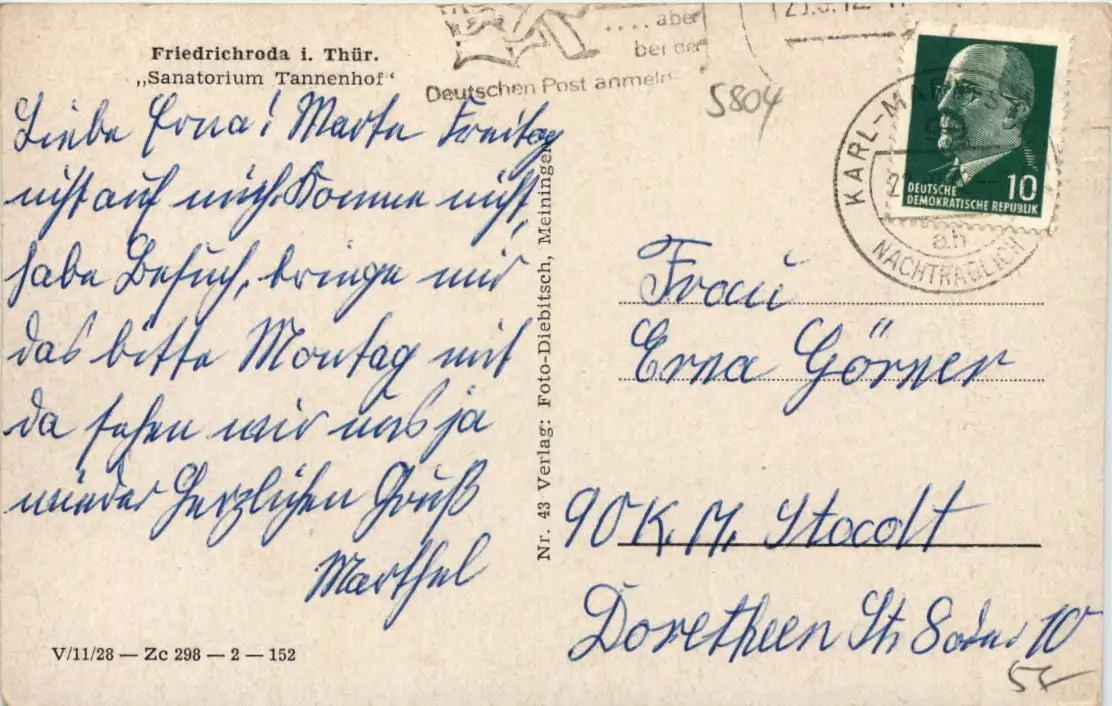 Friedrichroda i. Thür.
„Sanatorium Tannenhof“
Liebe Erna! Warte Freitag
nicht auf mich. Komme nicht,
habe Besuch, bringe mir
das bitte Montag mit
da sehen wir uns ja
wieder Herzlichen Gruß
Marthel
V/11/28 — Zc 298 — 2 — 152
Nr. 43 Verlag: Foto-Diebitsch, Meiningen
.... aber
bei der
Deutschen Post anmeld
5804
KARL-MARX-S
90
ah
NACHTRÄGLICH
DEUTSCHE
DEMOKRATISCHE REPUBLIK
10
Frau
Erna Görner
90 K. M. Stadt
Doretheen Str. 8 oder 10